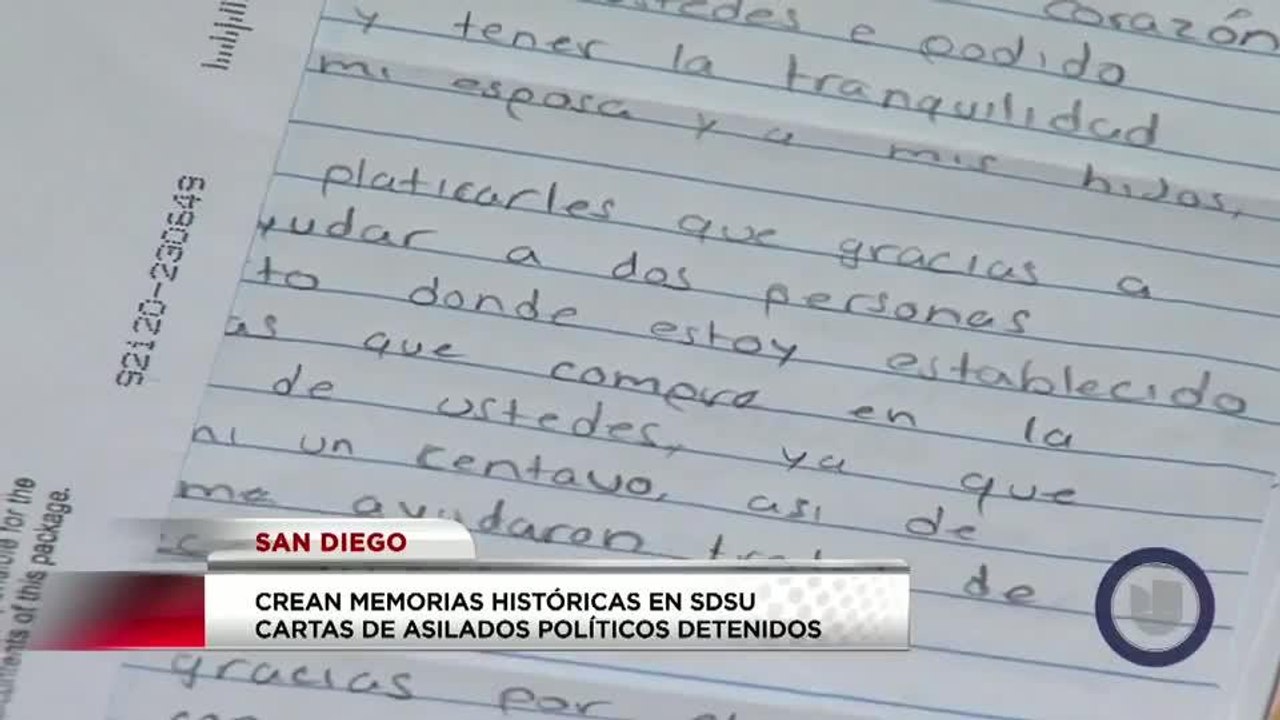 corazón
ustedes e podido
y tener la tranquilidad
mi esposa y a mis hijos,
platicarles que gracias a
yudar a dos personas
to donde estoy establecido
as que compra en la
de ustedes, ya que
ni un centavo, asi de
me ayudaron
de
gracias por
92120-230649
for the
contents of this package.
SAN DIEGO
CREAN MEMORIAS HISTÓRICAS EN SDSU
CARTAS DE ASILADOS POLÍTICOS DETENIDOS